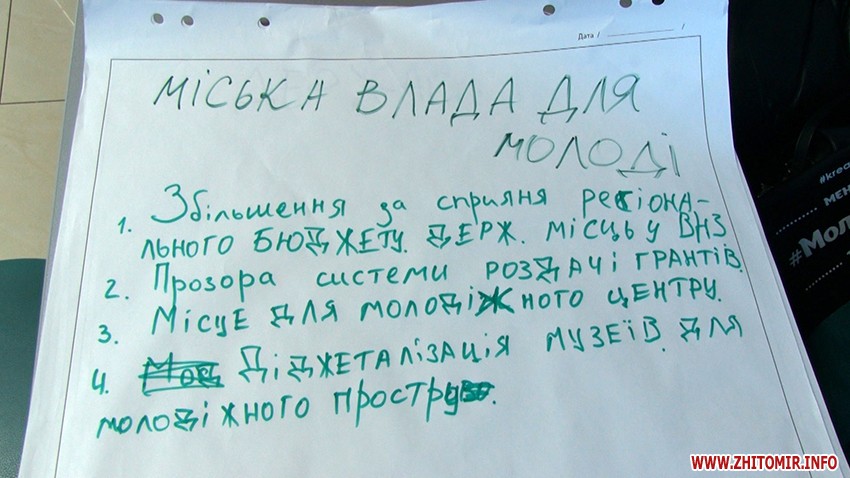 Дата /
МІСЬКА ВЛАДА ДЛЯ
МОЛОДІ
1. Збільшення за сприяня регіона-
льного бюджету. держ. місць у ВНЗ
2. Прозора системи роздачі грантів.
3. Місце для молодіжного центру.
4. Діджеталізація музеїв. для
молодіжного простру
#krea
МЕН
#Мол
WWW.ZHITOMIR.INFO